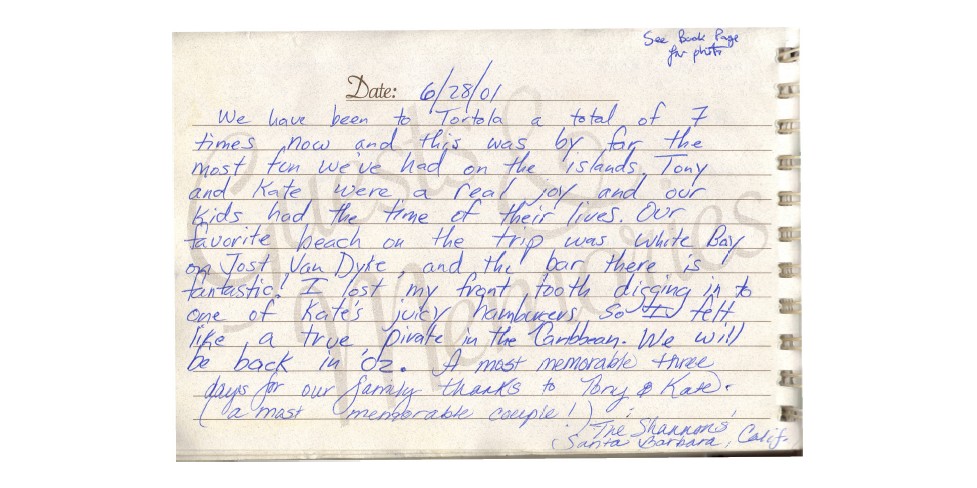 See Book Page
for photo
Date: 6/28/01
We have been to Tortola a total of 7
times now and this was by far the
most fun we've had on the islands. Tony
and Kate were a real joy and our
kids had the time of their lives. Our
favorite beach on the trip was White Bay
on Jost Van Dyke, and the bar there is
fantastic! I lost my front tooth digging in to
one of Kate's juicy hamburers so I felt
like a true pirate in the Caribbean. We will
be back in '02. A most memorable three
days for our family thanks to Tony & Kate.
(a most memorable couple!)
The Shannons
Santa Barbara, Calif.
Guest's
Memories